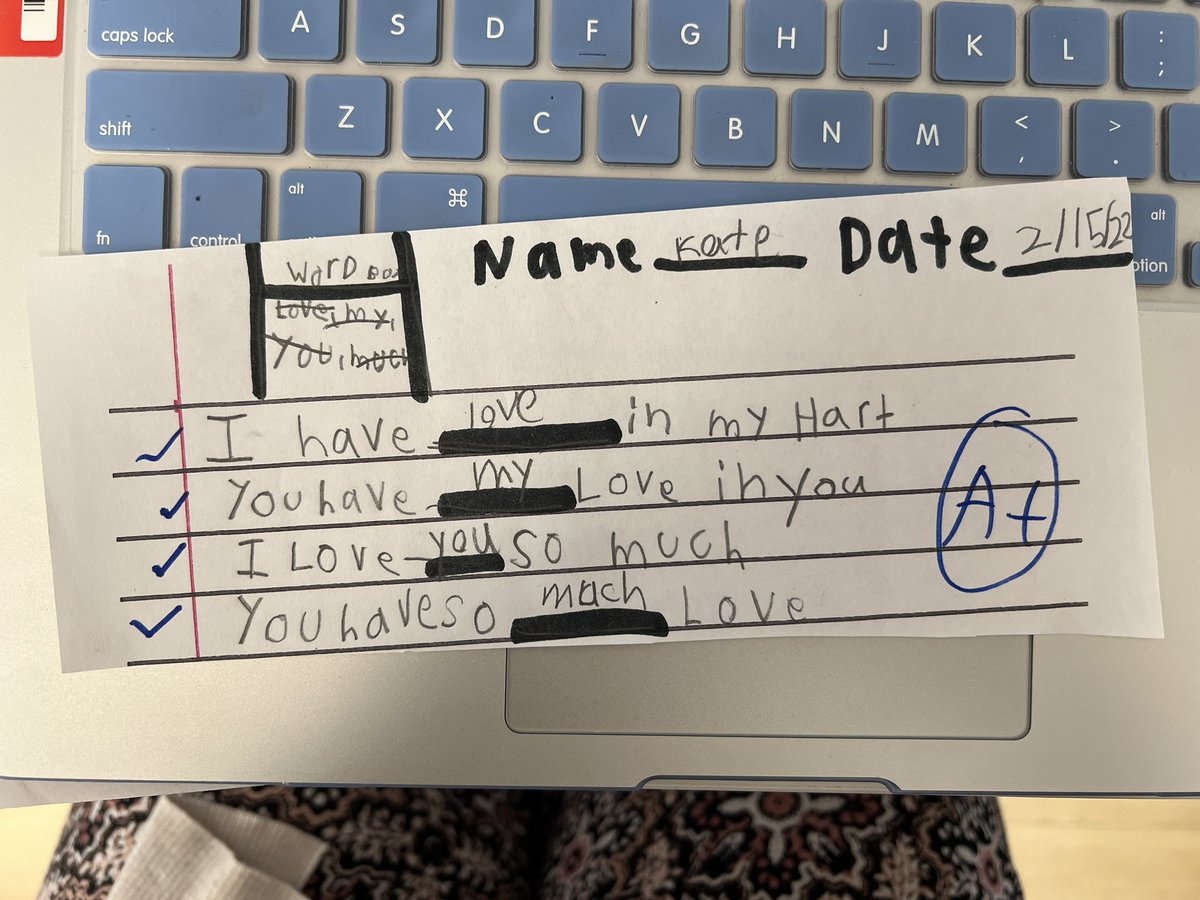 caps lock A S D F G H J K L : ;
shift Z X C V B N M < , > .
fn control alt ⌘ alt option
Name Kate Date 2/15/22
WorD
Love, my,
You, much
I have love in my Hart
You have my Love in you
I Love you so much
You have so mach Love
A+